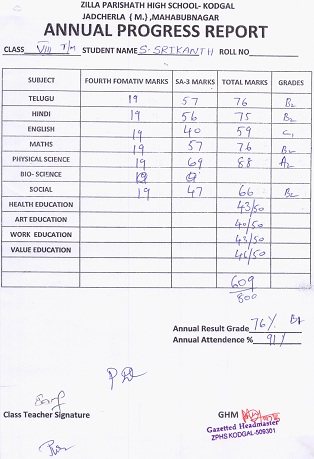 ZILLA PARISHATH HIGH SCHOOL- KODGAL
JADCHERLA ( M.) ,MAHABUBNAGAR
ANNUAL PROGRESS REPORT
CLASS VIII T/M STUDENT NAME S. SRIKANTH ROLL NO
SUBJECT FOURTH FOMATIV MARKS SA-3 MARKS TOTAL MARKS GRADES
TELUGU 19 57 76 B2
HINDI 19 56 75 B2
ENGLISH 19 40 59 C1
MATHS 19 57 76 B2
PHYSICAL SCIENCE 19 69 88 A2
BIO- SCIENCE
SOCIAL 19 47 66 B2
HEALTH EDUCATION 43/50
ART EDUCATION 40/50
WORK EDUCATION 43/50
VALUE EDUCATION 46/50
609
800
Annual Result Grade 76%
Annual Attendence % 91%
Class Teacher Signature
GHM
Gazetted Headmaster
ZPHS KODGAL-509301